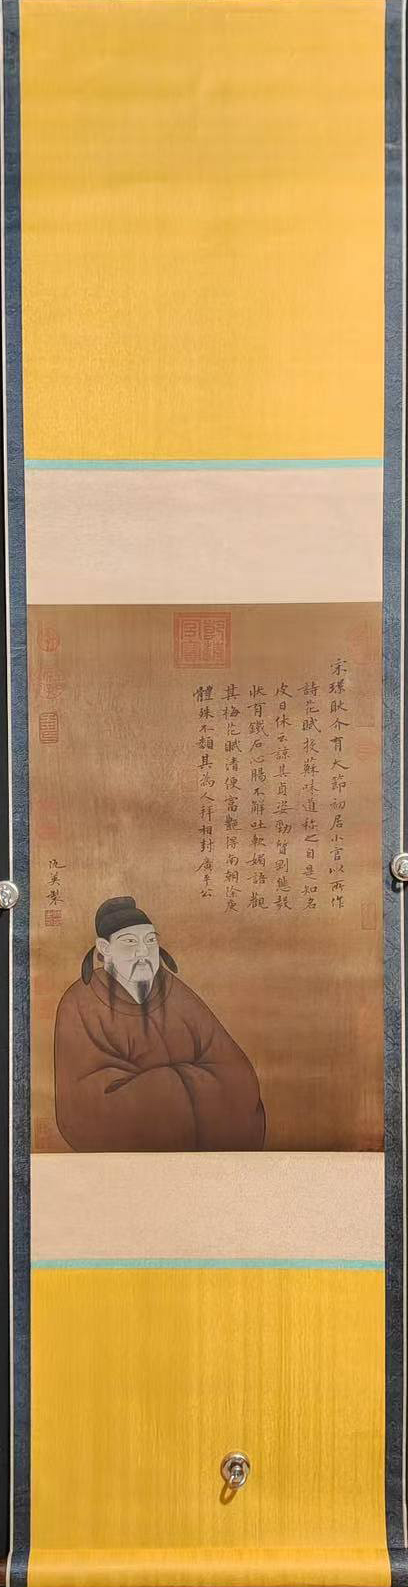 宋璟耿介有大節初居小官以所作
詩花賦投蘇味道称之自是知名
皮日休云諒其貞姿勁質剛態毅
狀有鐵石心腸不解吐軟媚語觀
其梅花賦清便富艷得南朝徐庾
體殊不類其為人拜相封廣平公
仇英製